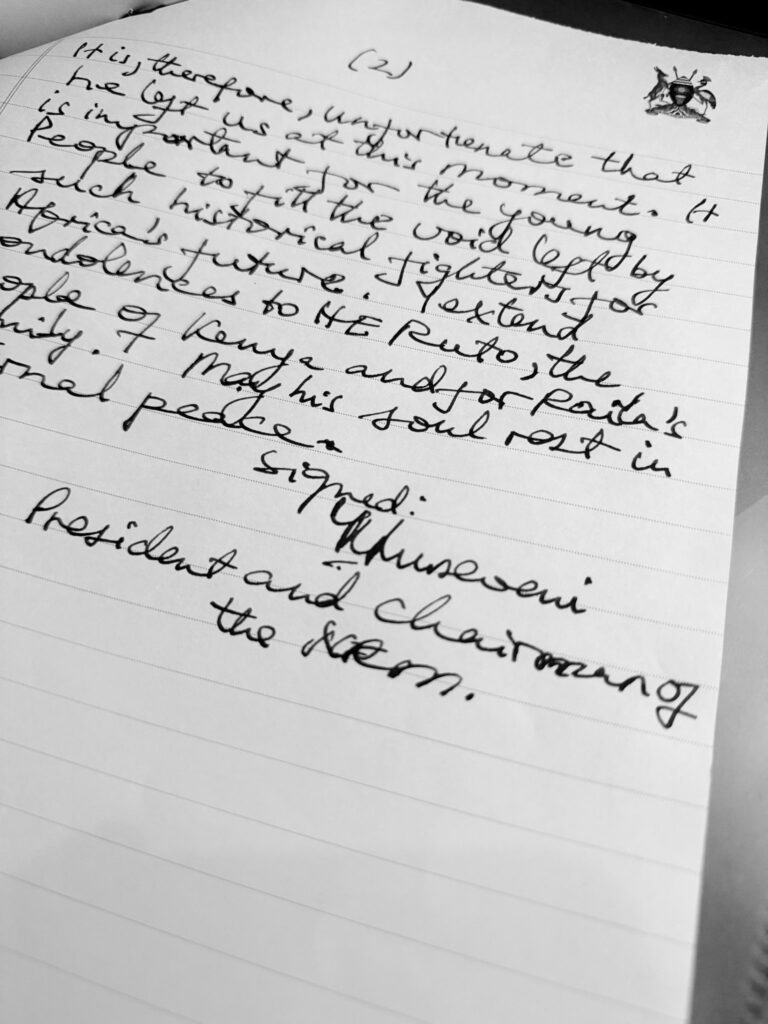 (2)
It is, therefore, unfortunate that
he left us at this moment. It
is important for the young
People to fill the void left by
such historical fighters for
Africa's future. I extend
ondolences to HE Ruto, the
ople of Kenya and for Raila's
mily. May his soul rest in
rnal peace.
Signed:
President and Chairman of
the NRM.